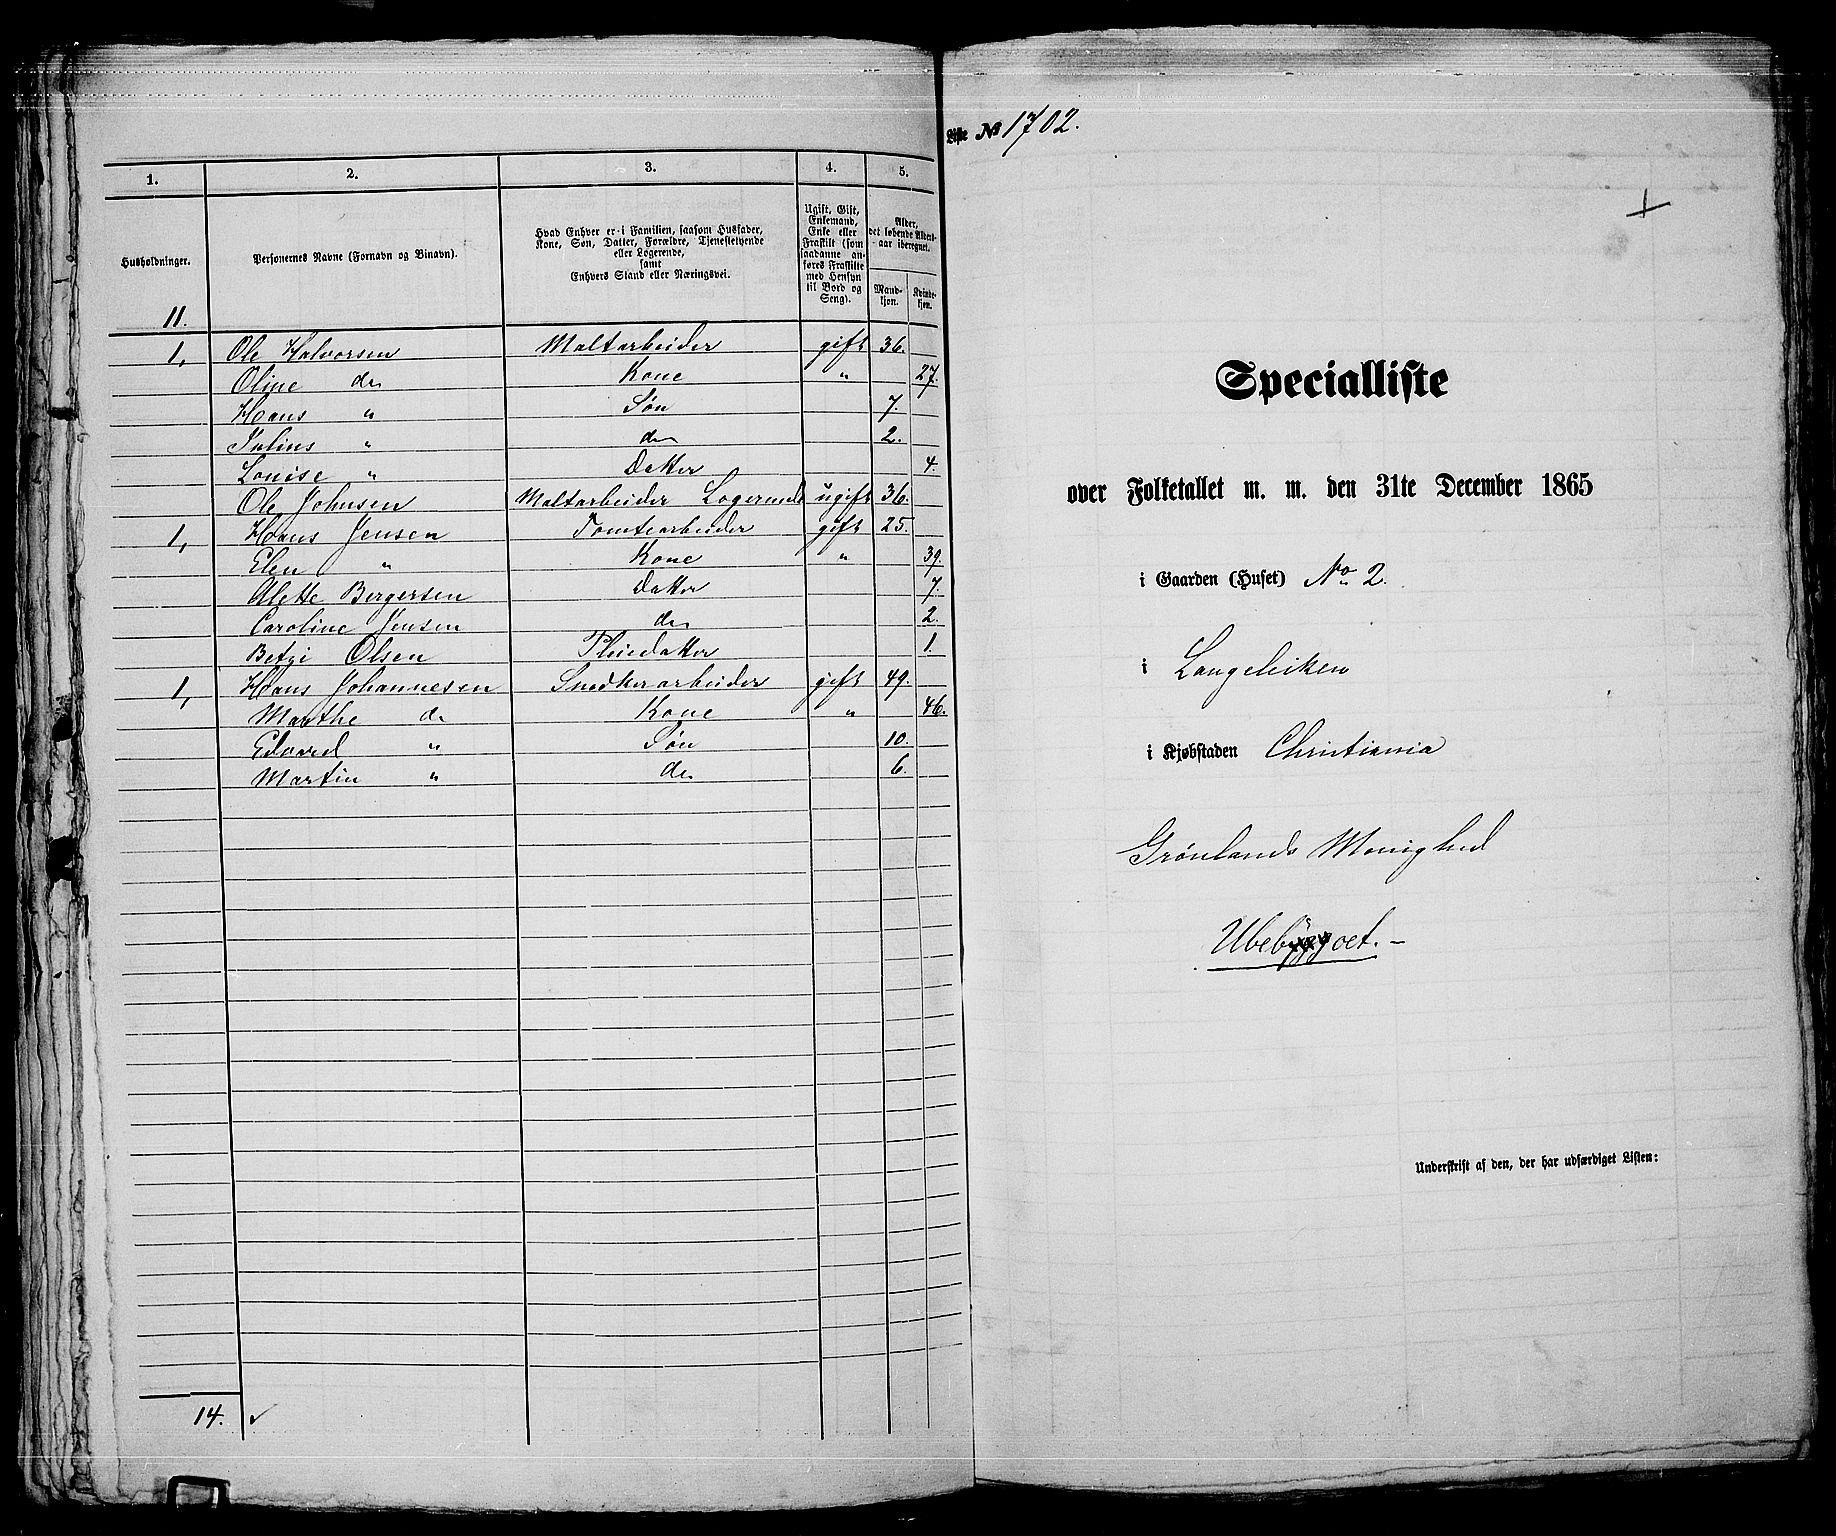 1. 2. 3. 4. 5.
Husholdninger.
Personernes Navne (Fornavn og Binavn).
Hvad Enhver er i Familien, saasom Husfader,
Kone, Søn, Datter, Forældre, Tjenestetyende
eller Logerende,
samt
Enhvers Stand eller Næringsvei.
Ugift, Gift,
Enkemand,
Enke eller
Fraskilt (som
saadanne an-
føres Fraskilte
med Hensyn
til Bord og
Seng).
Alder,
det løbende Alders-
aar iberegnet.
Mand-
kjøn.
Kvinde-
kjøn.
11.
1, Ole Halvorsen Maltarbeider gift 36.
Oline do Kone " 27.
Hans " Søn 7.
Julius " do 2.
Louise " Datter 4.
Ole Johnsen Maltarbeider Logerende ugift 36.
1, Hans Jensen Tomtearbeider gift 25.
Elen " Kone " 39.
Alette Bergersen Datter 7.
Caroline Jensen do 2.
Betzi Olsen Pleiedatter 1.
1, Hans Johannesen Snedkerarbeider gift 49.
Marthe do Kone " 46.
Edvard " Søn 10.
Martin " do 6.
14. ✓
Liste № 1702.
Specialliste
over Folketallet m. m. den 31te December 1865
i Gaarden (Huset) No 2.
i Langeleiken
i Kjøbstaden Christiania
Grønlands Menighed
Underskrift af den, der har udfærdiget Listen: